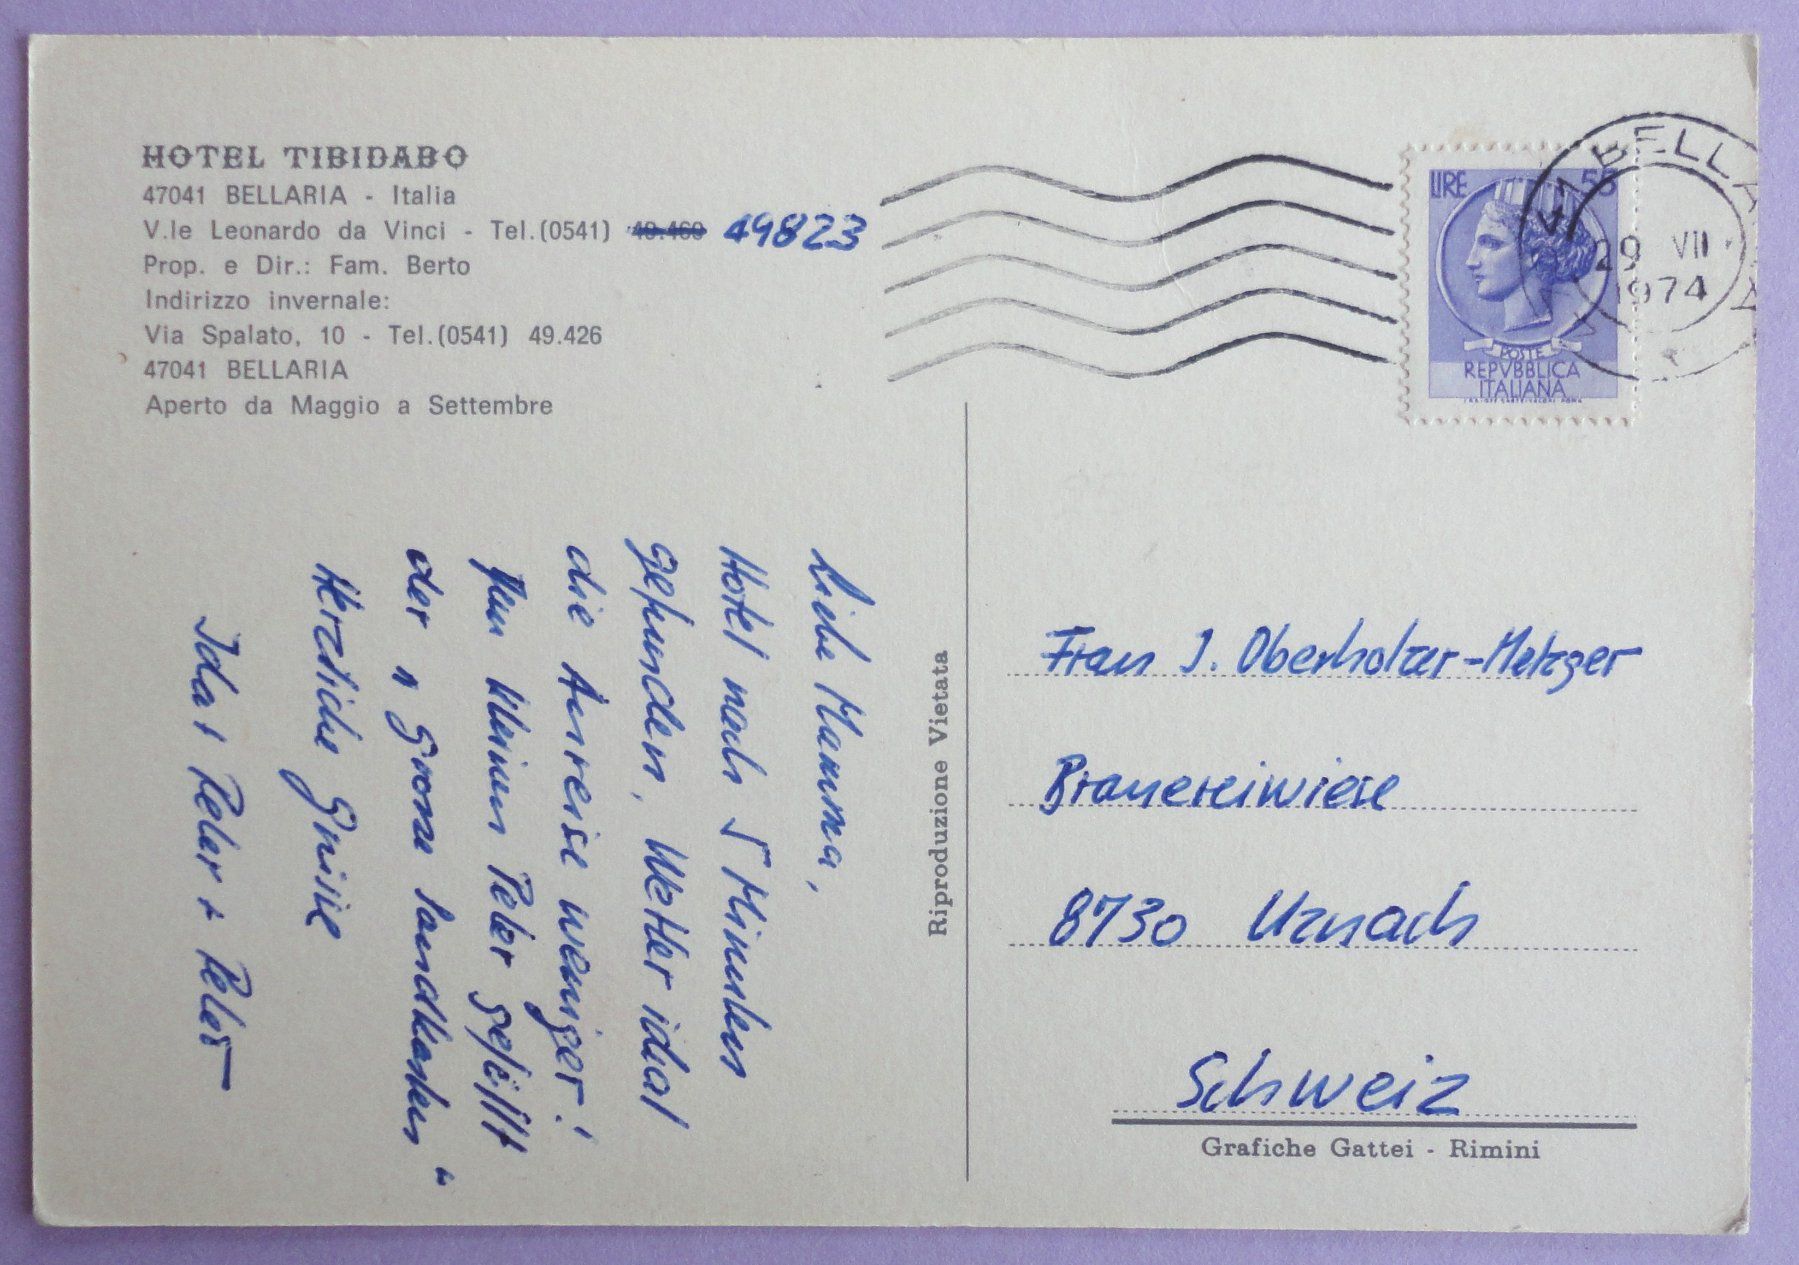 HOTEL TIBIDABO
47041 BELLARIA - Italia
V.le Leonardo da Vinci - Tel. (0541) 49.469 49823
Prop. e Dir.: Fam. Berto
Indirizzo invernale:
Via Spalato, 10 - Tel. (0541) 49.426
47041 BELLARIA
Aperto da Maggio a Settembre
Liebe Mamma,
Hotel nach 5 Minuten
gefunden. Wetter ideal
die Anreise weniger!
Dem kleinen Peter gefällt
der "grosse Sandkasten"
Herzliche Grüsse
Ida + Peter + Peter
Riproduzione Vietata
LIRE 55
POSTE
REPVBBLICA
ITALIANA
BELLARIA
29 VII
1974
Frau J. Oberholzer-Metzger
Brauereiwiese
8730 Uznach
Schweiz
Grafiche Gattei - Rimini